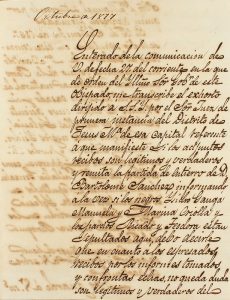 Octubre 1877
Enterado de la comunicacion de
V. de fecha 27 del corriente en la que
de orden del Illmo Sor Gob.r de este
Obispado, me transcribe el exhorto
dirigido a S.S.I. por el Sor Juez de
primera instancia del Distrito de
de esa Capital referente
a que manifieste si los adjuntos
recibos son legitimos y verdaderos
y remita la partida de entierro de D.
Bartolomé Sanchez informando
a la vez si los negros
Manuela y Marina Criolla y
los pardos Ricardo y estan
sepultados aqui, debo decirle
que en cuanto a los espresados
recibos por los informes tomados
y confrontar ellos, no queda duda
son legitimos y verdaderos del